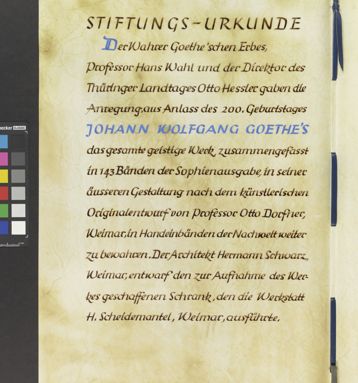 STIFTUNGS-URKUNDE
Der Wahrer Goethe'schen Erbes,
Professor Hans Wahl und der Direktor des
Thüringer Landtages Otto Hessler gaben die
Anregung, aus Anlass des 200. Geburtstages
JOHANN WOLFGANG GOETHE'S
das gesamte geistige Werk, zusammengefasst
in 143 Bänden der Sophienausgabe, in seiner
äusseren Gestaltung nach dem künstlerischen
Originalentwurf von Professor Otto Dorfner,
Weimar, in Handeinbänden der Nachwelt weiter
zu bewahren. Der Architekt Hermann Schwarz,
Weimar, entwarf den zur Aufnahme des Wer-
kes geschaffenen Schrank, den die Werkstatt
H. Scheidemantel, Weimar, ausführte.